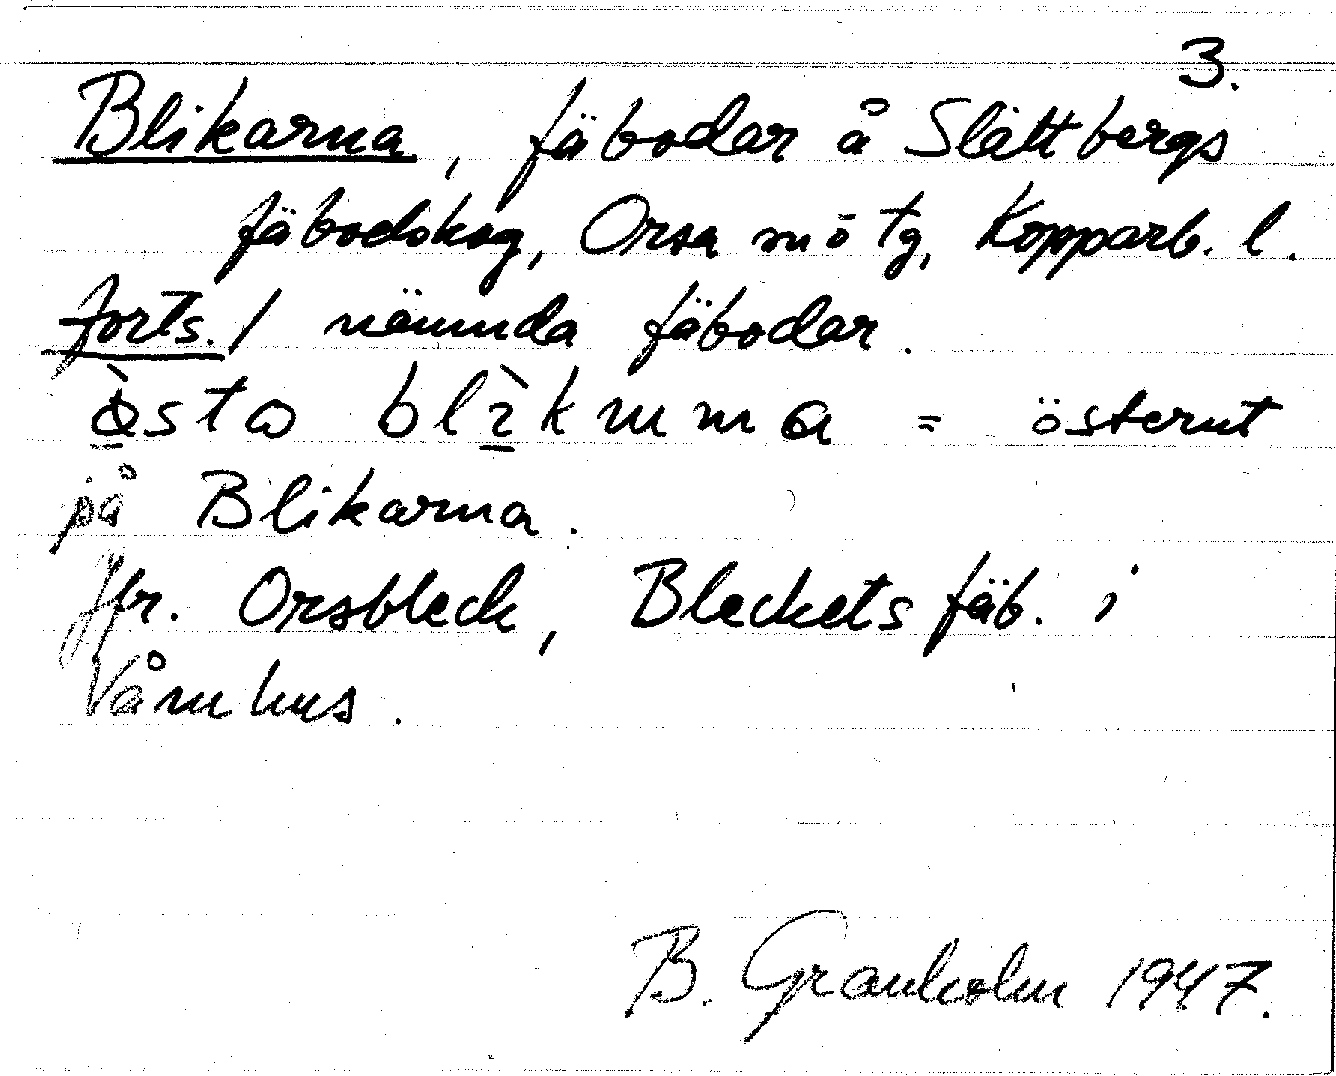 3.
Blikarna, fäbodar å Slättbergs
fäbodskog, Orsa sn o tg, Kopparb. l.
forts./ nämnda fäbodar.
blìkumma = österut
på Blikarna.
Jfr. Orsbleck, Bleckets fäb. i
Våmhus.
B. Granholm 1947.